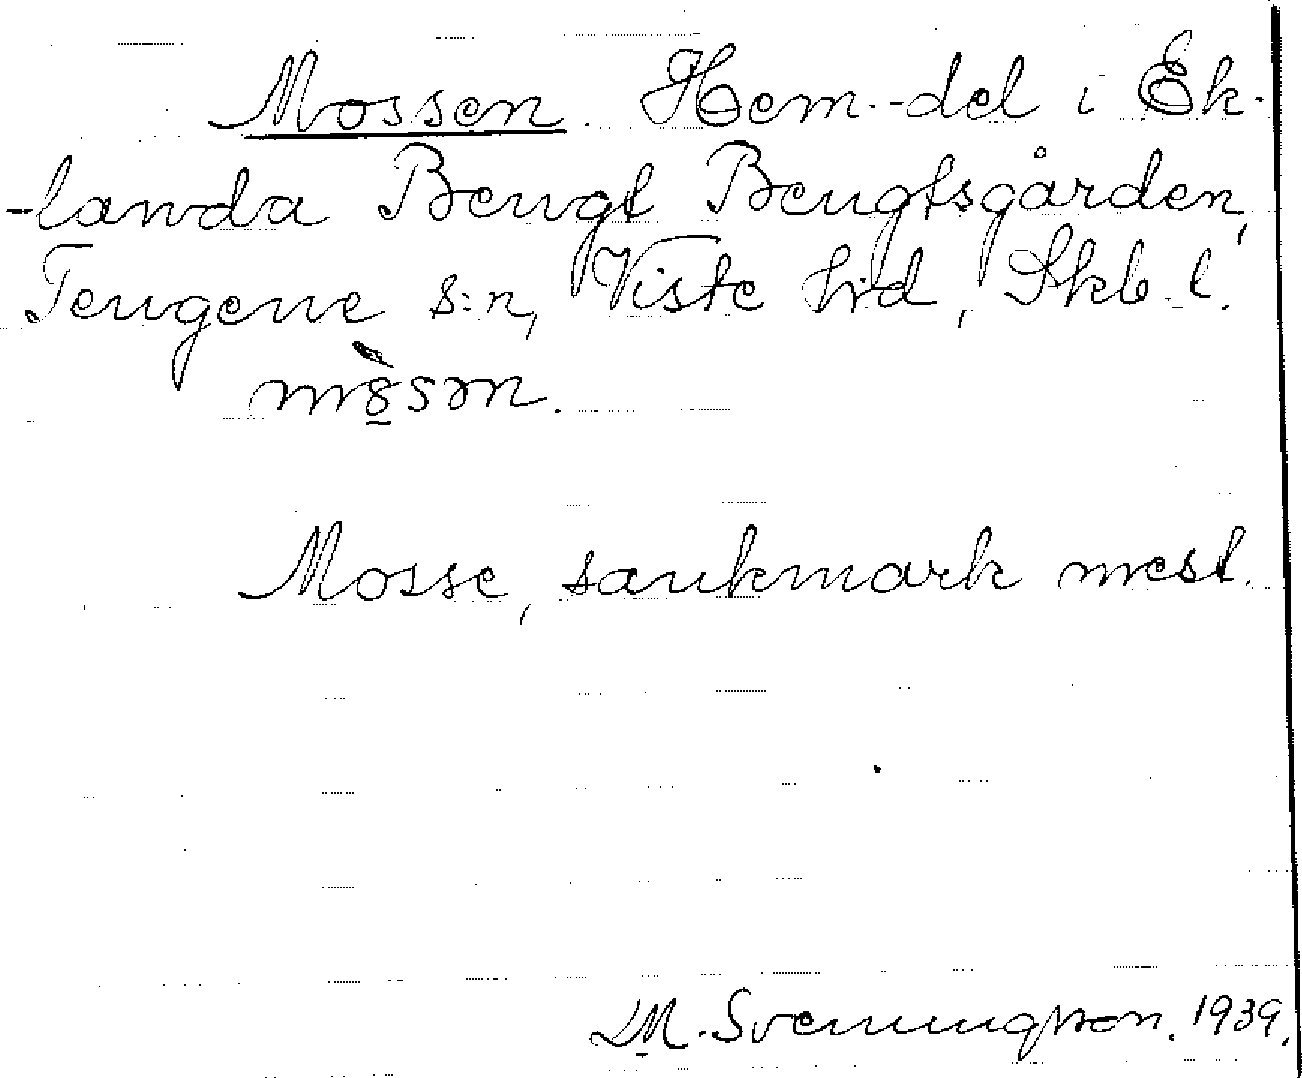 Mossen. Hem.-del i Ek-
-landa Bengt Bengtsgården,
Tengene s:n, Viste hd, Skb. l.
m8̲̀sən.
Mosse, sankmark mest.
M. Svenningson. 1939.